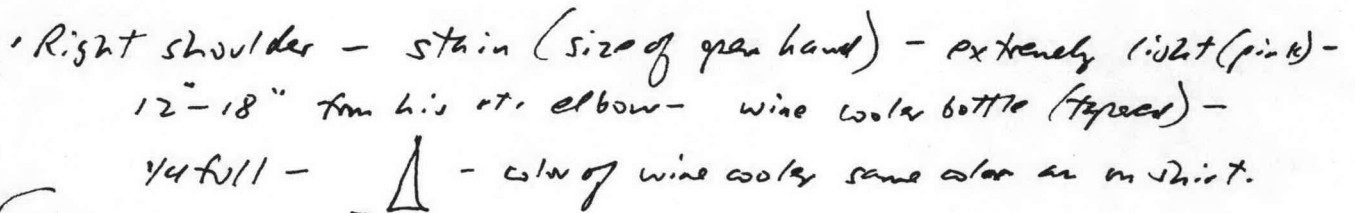 • Right shoulder – stain (size of open hand) – extremely light (pink) –
12" – 18" from his rt. elbow – wine cooler bottle (tapered) –
1/4 full – – color of wine cooler same color as on shirt.